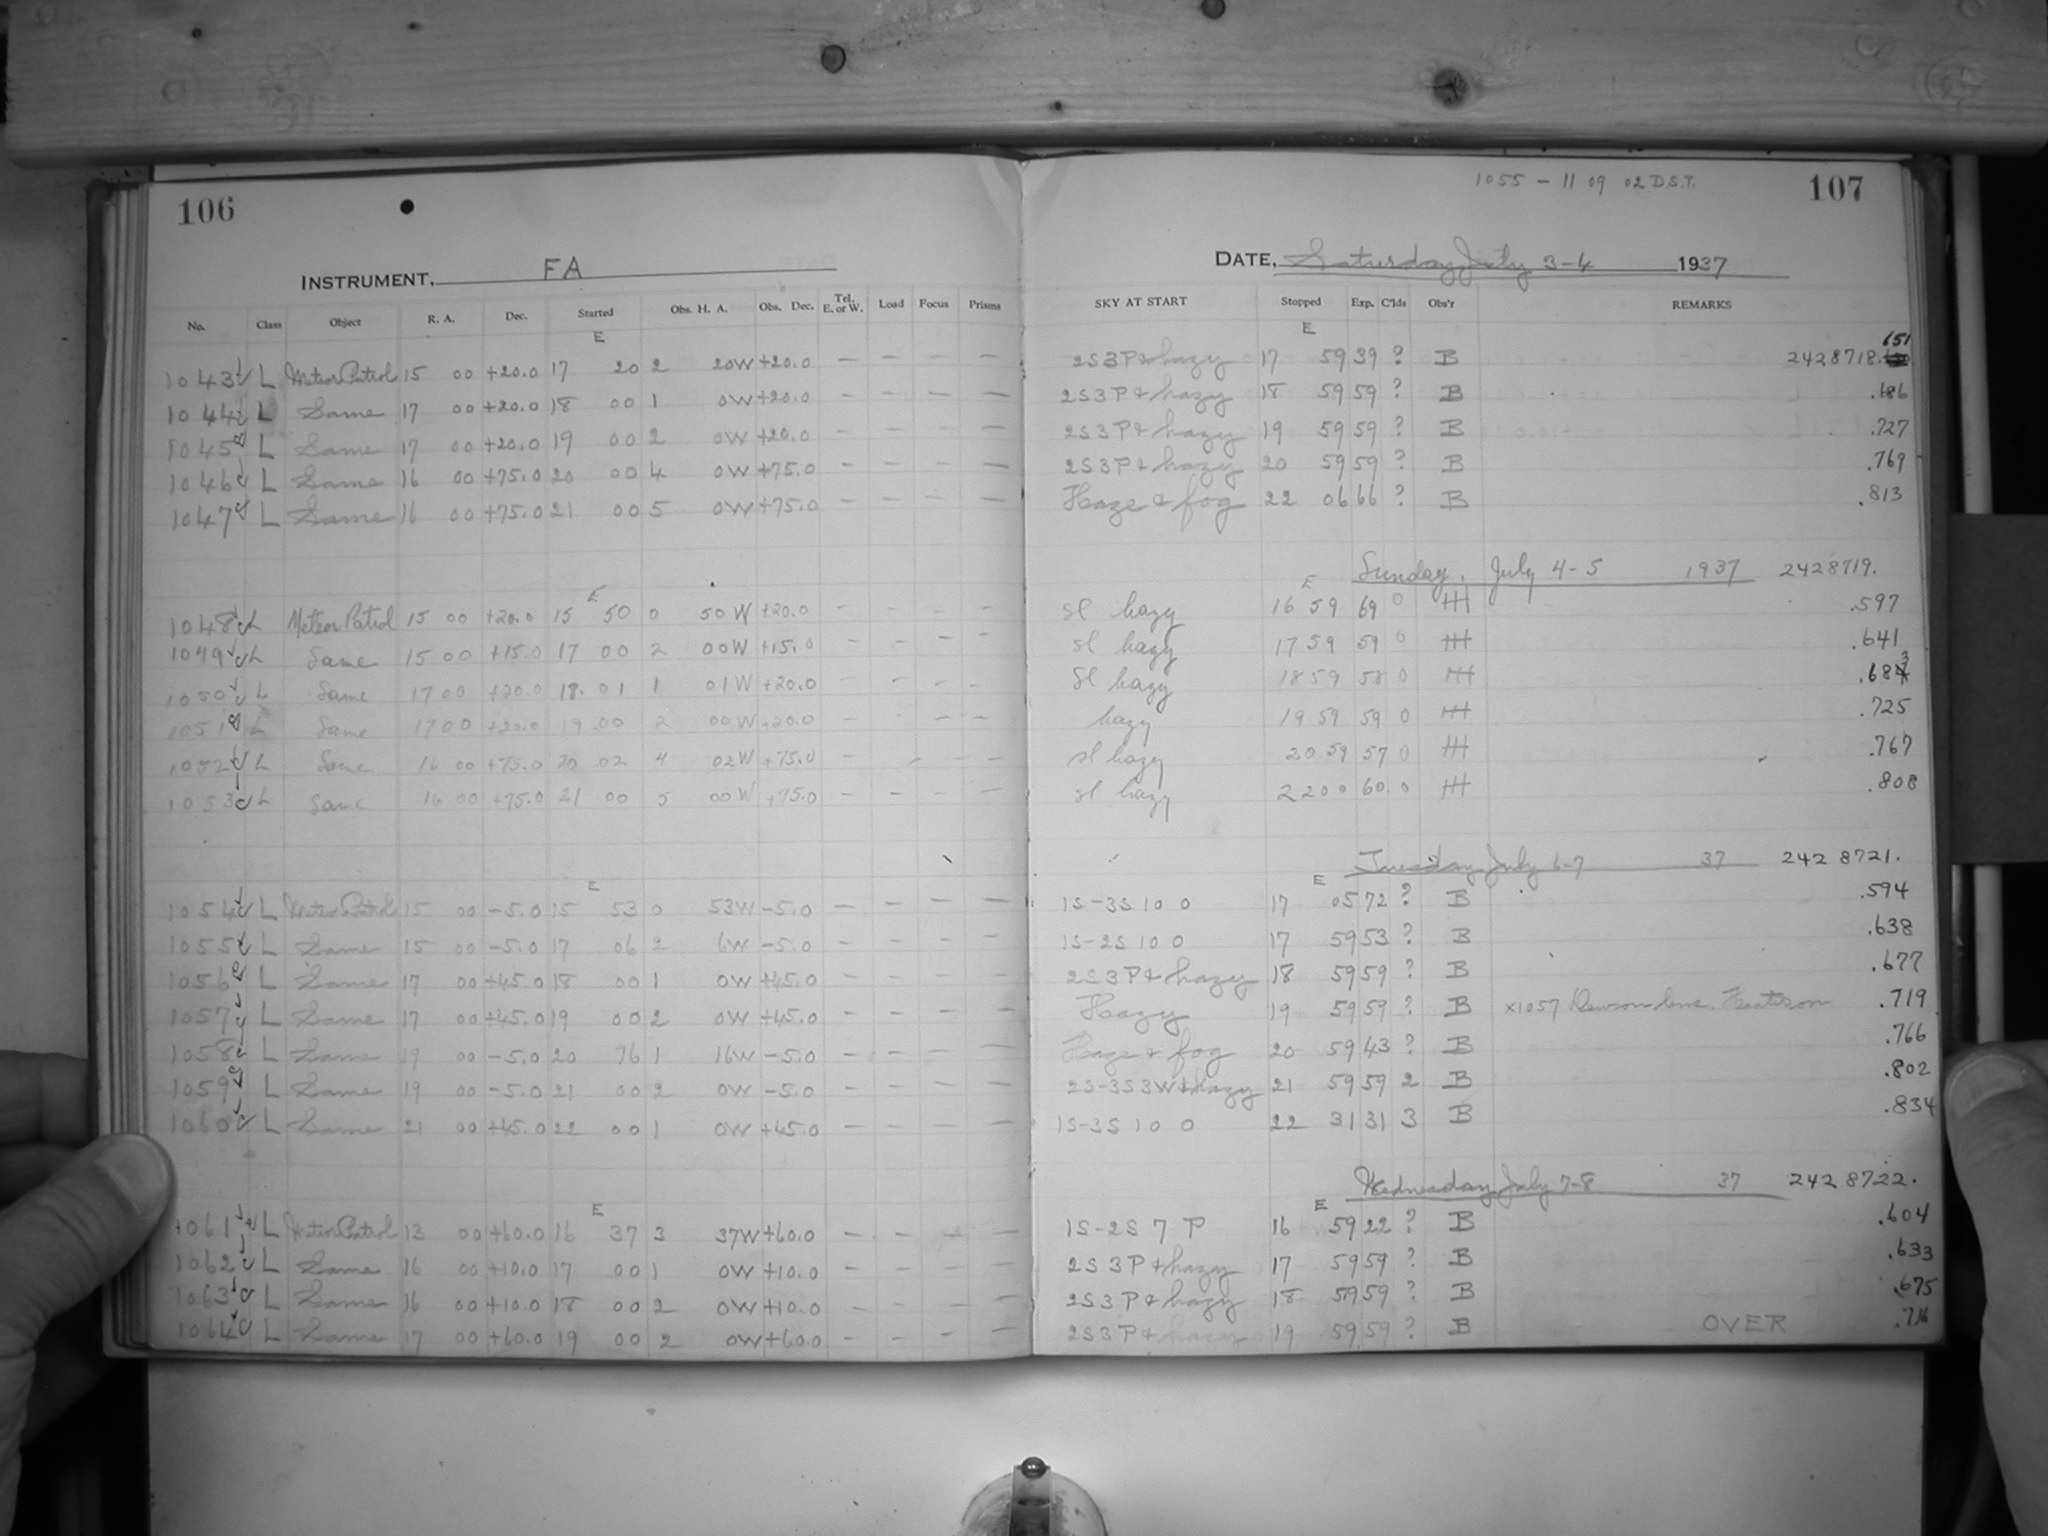 106
INSTRUMENT, FA
No. Class Object R. A. Dec. Started Obs. H. A. Obs. Dec. Tel. E. or W. Load Focus Prisms
E
1043 L Meteor Patrol 15 00 +20.0 17 20 2 20W +20.0 — — — —
1044 L Same 17 00 +20.0 18 00 1 0W +20.0 — — — —
1045 L Same 17 00 +20.0 19 00 2 0W +20.0 — — — —
1046 L Same 16 00 +75.0 20 00 4 0W +75.0 — — — —
1047 L Same 16 00 +75.0 21 00 5 0W +75.0 — — — —
E
1048 L Meteor Patrol 15 00 +20.0 15 50 0 50W +20.0 — — — —
1049 L Same 15 00 +15.0 17 00 2 00W +15.0 — — — —
1050 L Same 17 00 +20.0 18 01 1 01W +20.0 — — — —
1051 L Same 17 00 +20.0 19 00 2 00W +20.0 — — — —
1052 L Same 16 00 +75.0 20 02 4 02W +75.0 — — — —
1053 L Same 16 00 +75.0 21 00 5 00W +75.0 — — — —
E
1054 L Meteor Patrol 15 00 -5.0 15 53 0 53W -5.0 — — — —
1055 L Same 15 00 -5.0 17 06 2 6W -5.0 — — — —
1056 L Same 17 00 +45.0 18 00 1 0W +45.0 — — — —
1057 L Same 17 00 +45.0 19 00 2 0W +45.0 — — — —
1058 L Same 19 00 -5.0 20 16 1 16W -5.0 — — — —
1059 L Same 19 00 -5.0 21 00 2 0W -5.0 — — — —
1060 L Same 21 00 +45.0 22 00 1 0W +45.0 — — — —
E
1061 L Meteor Patrol 13 00 +60.0 16 37 3 37W +60.0 — — — —
1062 L Same 16 00 +10.0 17 00 1 0W +10.0 — — — —
1063 L Same 16 00 +10.0 18 00 2 0W +10.0 — — — —
1064 L Same 17 00 +60.0 19 00 2 0W +60.0 — — — —
1055 - 11 09 02 D.S.T.
107
DATE, Saturday July 3-4 1937
SKY AT START Stopped Exp. C'lds Obs'r REMARKS
E
651
2S3P & hazy 17 59 39 ? B 2428718.
2S3P & hazy 18 59 59 ? B .686
2S3P & hazy 19 59 59 ? B .727
2S3P & hazy 20 59 59 ? B .769
Haze & fog 22 06 66 ? B .813
Sunday, July 4-5 1937 2428719.
E
sl hazy 16 59 69 0 HH .597
sl hazy 17 59 59 0 HH .641
sl hazy 18 59 58 0 HH .683
hazy 19 59 59 0 HH .725
sl hazy 20 59 57 0 HH .767
sl hazy 22 00 60 0 HH .808
Tuesday July 6-7 37 2428721.
E
1S-3S 10 0 17 05 72 ? B .594
1S-2S 10 0 17 59 53 ? B .638
2S3P & hazy 18 59 59 ? B .677
Hazy 19 59 59 ? B x1057 Dew on lens. Heater on .719
Haze & fog 20 59 43 ? B .766
2S-3S3W & hazy 21 59 59 2 B .802
1S-3S 10 0 22 31 31 3 B .834
Wednesday July 7-8 37 2428722.
E
1S-2S 7 P 16 59 22 ? B .604
2S3P & hazy 17 59 59 ? B .633
2S3P & hazy 18 59 59 ? B .675
2S3P & hazy 19 59 59 ? B OVER .716